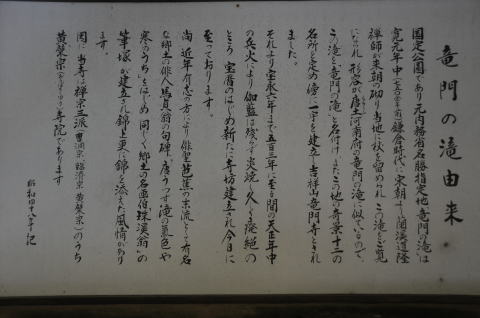 竜門の滝由来
国定公園であり元内務省名勝指定地「竜門の滝」は
寛元年中鎌倉時代に来朝した蘭渓道隆
禅師が来朝の砌り当地へ杖を留められこの滝をご覧
になられ形容が唐土河南府の竜門の滝に似ているので、
この滝を「竜門の滝」と名付けまたこの地の奇景十二の
名所を定め傍に一宇を建立し吉祥山竜門寺とされ
ました。
それより宝永六年まで五百三年に至る間の天正年中
の兵火により伽藍は残らず炎焼し久しく廃絶の
ところ宝暦のはじめ新たに寺坊建立され今日に
至っております。
尚近年有志の方により俳聖芭蕉の末流として有名
な郷土の俳人馬貞翁の句碑、唐うつす滝の景色や
寒のうちをはじめ同じく郷土の名画伯珠渓翁の
筆塚が建立され錦上更に錦を添えた風情があり
ます。
因に当寺は禅宗三派(曹洞宗 臨済宗 黄檗宗)のうち
黄檗宗寺院であります
昭和四八年 記